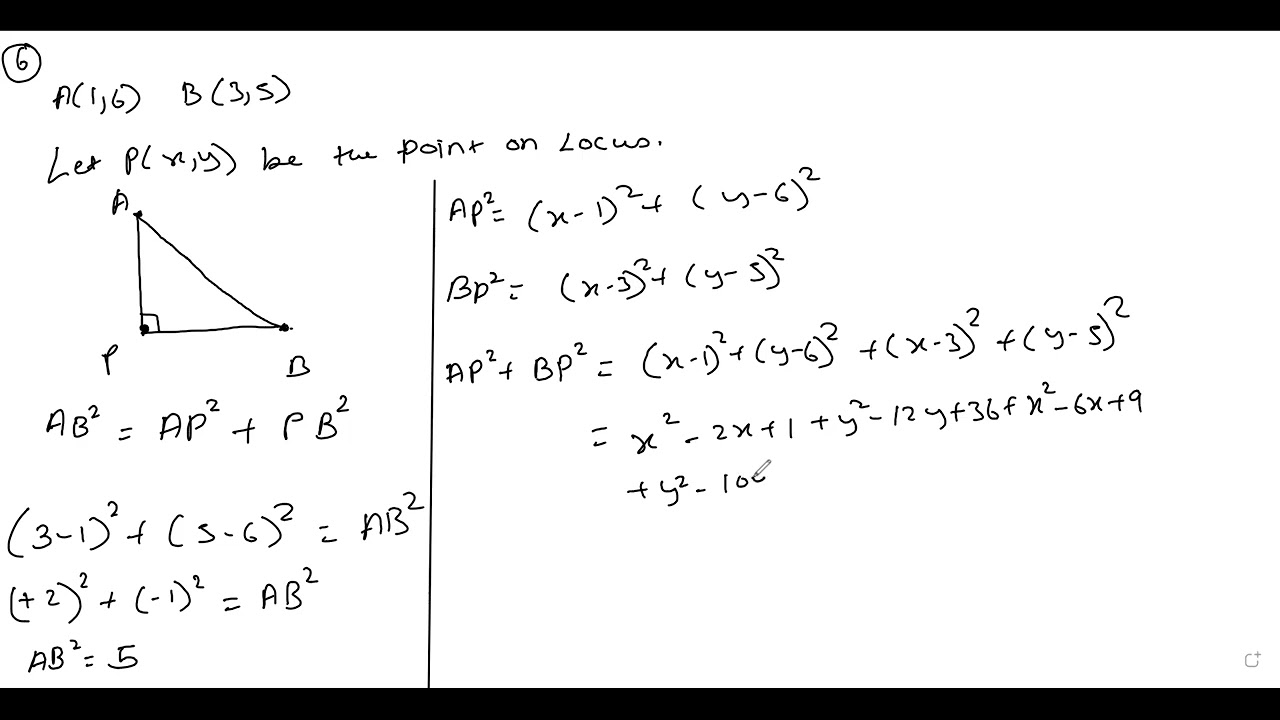 6
A(1,6) B(3,5)
Let P(x,y) be the point on Locus.
A
P
B
AB² = AP² + PB²
(3-1)² + (5-6)² = AB²
(+2)² + (-1)² = AB²
AB² = 5
AP² = (x-1)² + (y-6)²
BP² = (x-3)² + (y-5)²
AP² + BP² = (x-1)² + (y-6)² + (x-3)² + (y-5)²
= x² - 2x + 1 + y² - 12y + 36 + x² - 6x + 9
+ y² - 10